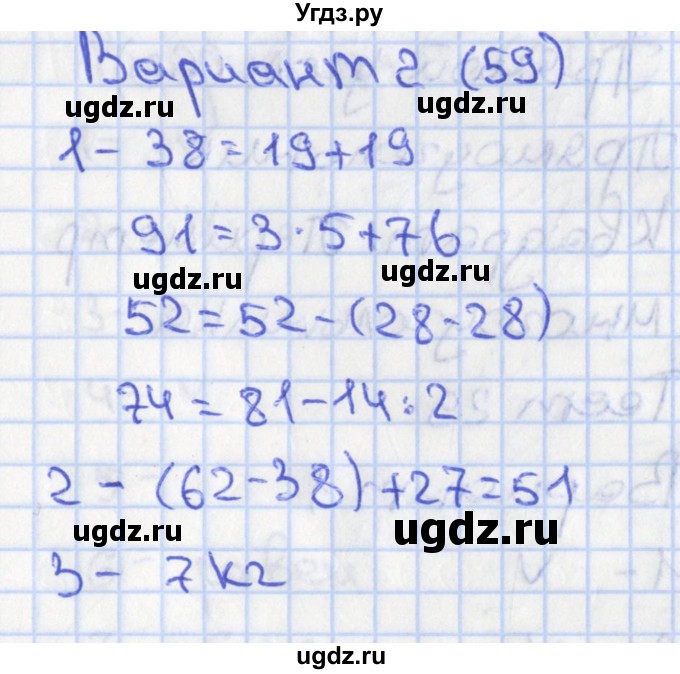 Угдз.ру
Вариант 2 (59)
ugdz.ru ugdz.ru
1 - 38 = 19 + 19
91 = 3 · 5 + 76
ugdz.ru ugdz.ru
52 = 52 - (28 - 28)
74 = 81 - 14 : 2
2 - (62 - 38) + 27 = 51
ugdz.ru ugdz.ru
3 - 7 кг
ugdz.ru